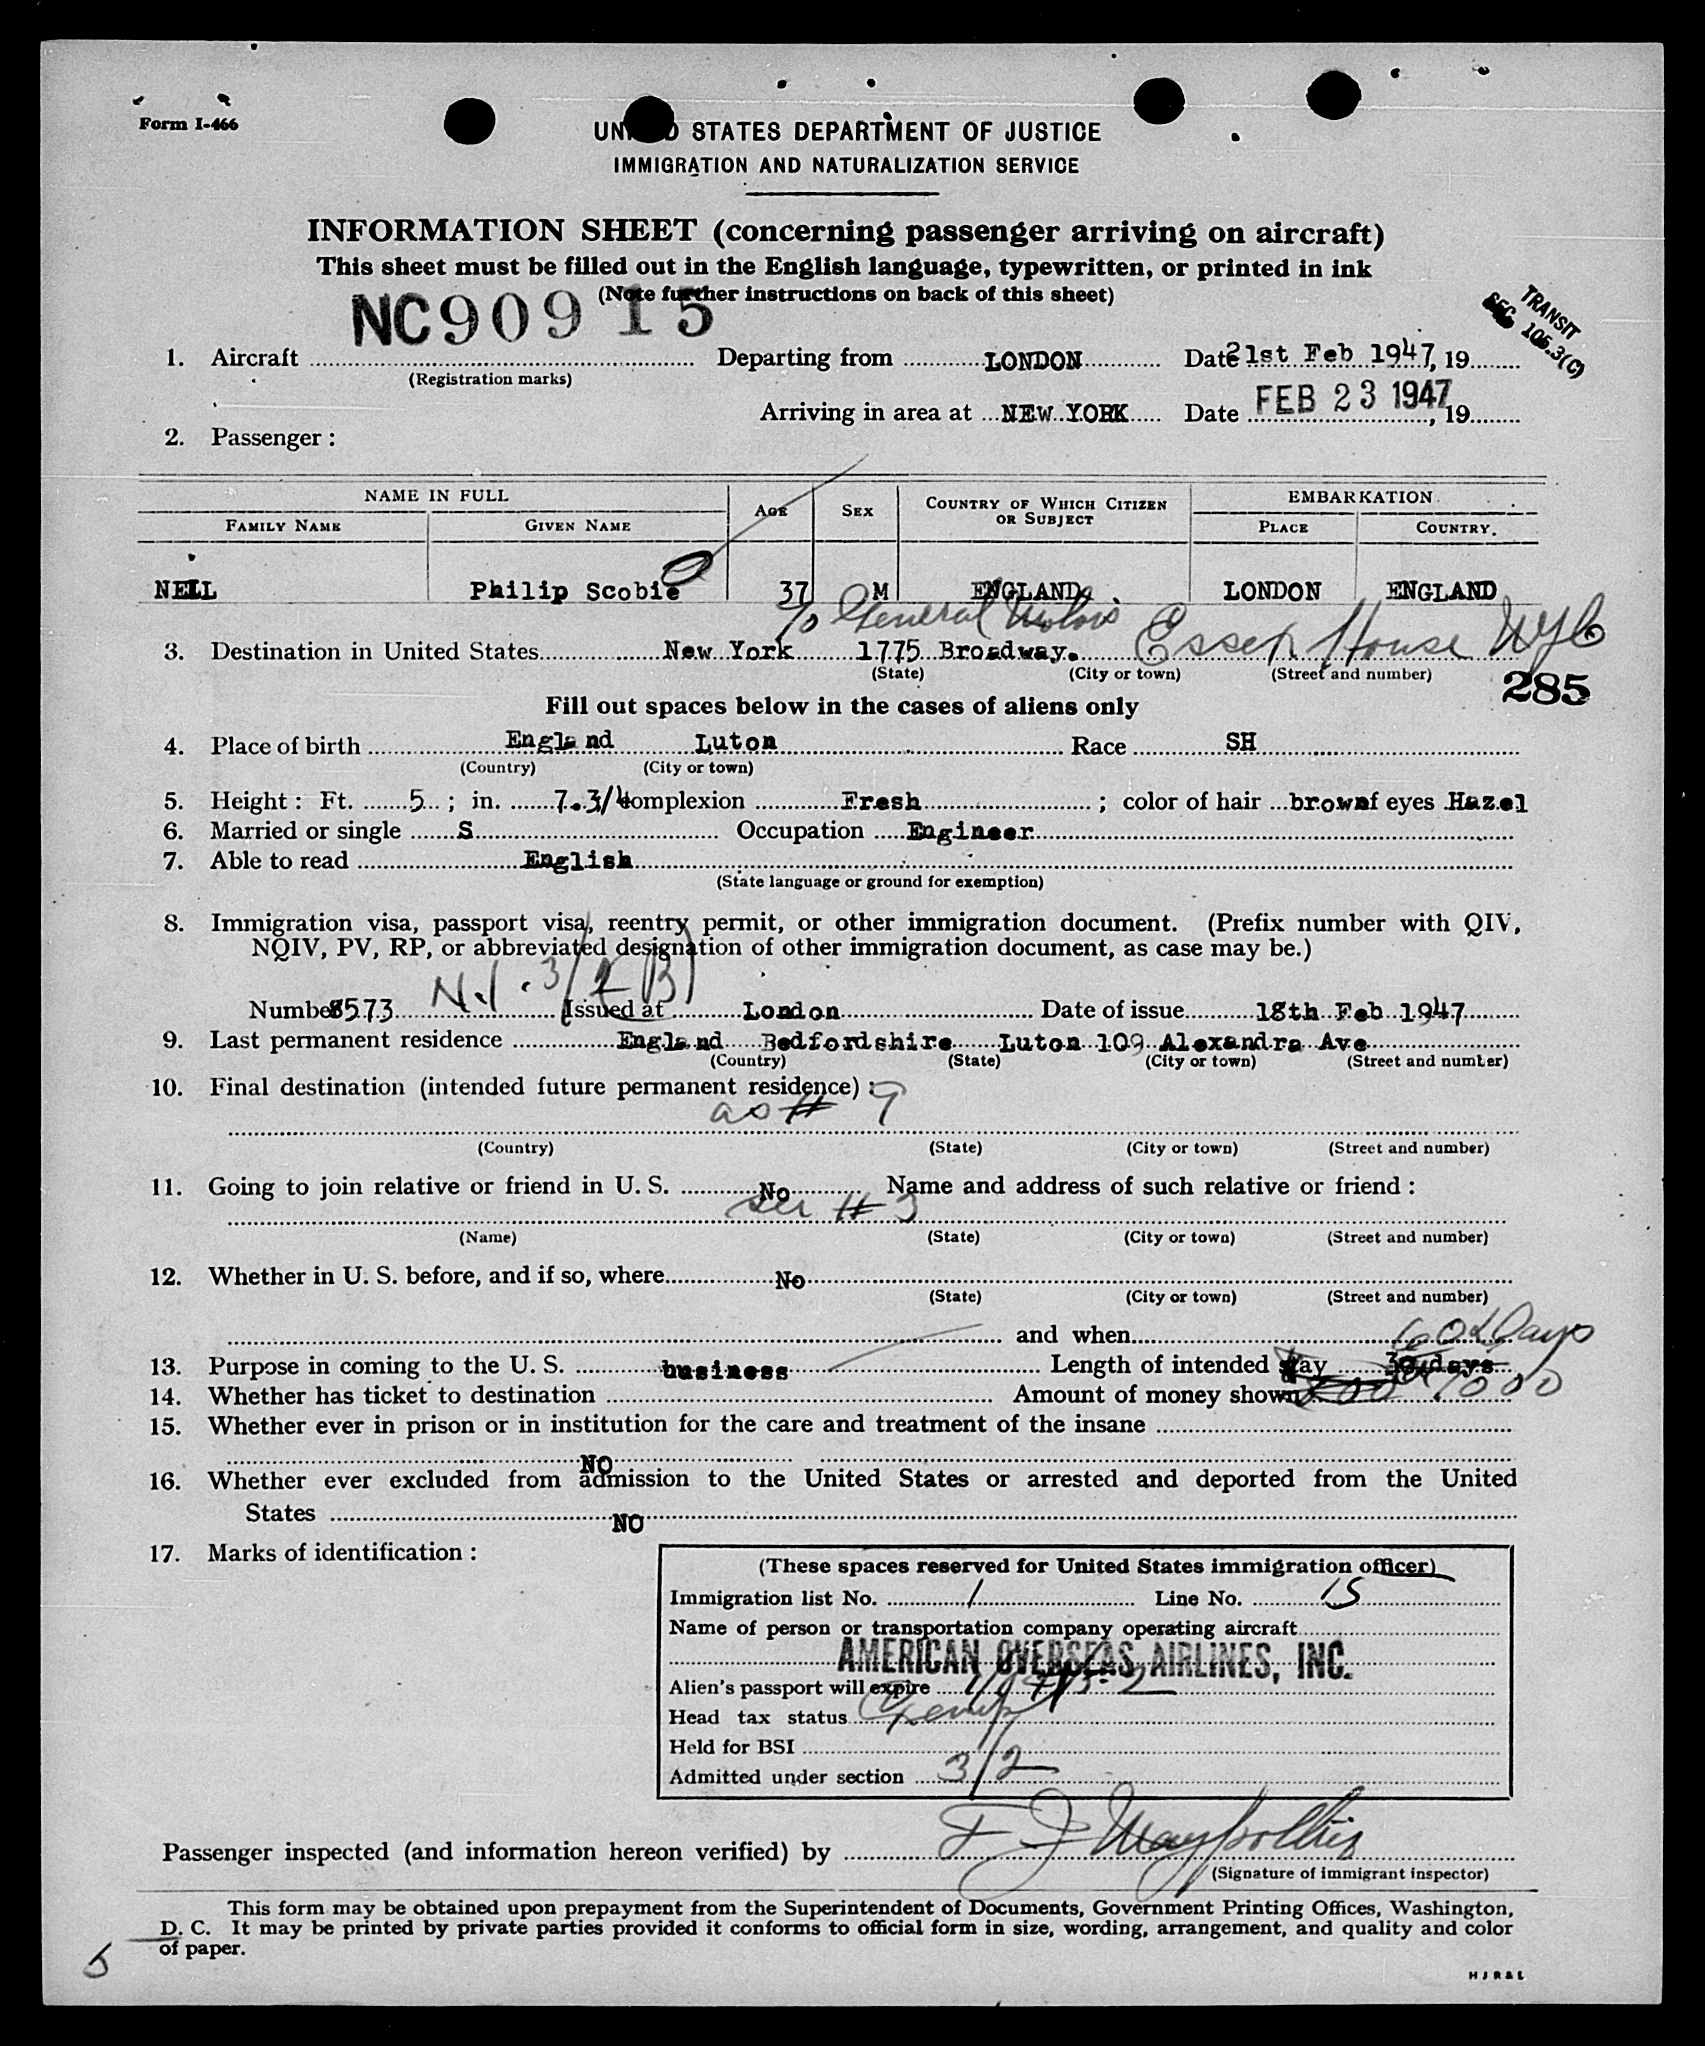 Form I-466
UNITED STATES DEPARTMENT OF JUSTICE
IMMIGRATION AND NATURALIZATION SERVICE
INFORMATION SHEET (concerning passenger arriving on aircraft)
This sheet must be filled out in the English language, typewritten, or printed in ink
(Note further instructions on back of this sheet)
NC90915
TRANSIT
SEC 105.3(C)
1. Aircraft Departing from LONDON Date 21st Feb 1947, 19
(Registration marks)
Arriving in area at NEW YORK Date FEB 23 1947, 19
2. Passenger:
NAME IN FULL AGE SEX COUNTRY OF WHICH CITIZEN OR SUBJECT EMBARKATION
FAMILY NAME GIVEN NAME PLACE COUNTRY.
NELL Philip Scobie 37 M ENGLAND. LONDON ENGLAND
c/o General Motors Essex House NYC
3. Destination in United States New York 1775 Broadway.
(State) (City or town) (Street and number)
285
Fill out spaces below in the cases of aliens only
4. Place of birth England Luton Race SH
(Country) (City or town)
5. Height: Ft. 5; in. 7.3/4 complexion Fresh; color of hair brown of eyes Hazel
6. Married or single S Occupation Engineer
7. Able to read English
(State language or ground for exemption)
8. Immigration visa, passport visa, reentry permit, or other immigration document. (Prefix number with QIV,
NQIV, PV, RP, or abbreviated designation of other immigration document, as case may be.)
N.I. 3/2 (B)
Number 8573 Issued at London Date of issue 18th Feb 1947
9. Last permanent residence England Bedfordshire Luton 109 Alexandra Ave
(Country) (State) (City or town) (Street and number)
10. Final destination (intended future permanent residence):
as # 9
(Country) (State) (City or town) (Street and number)
11. Going to join relative or friend in U. S. No Name and address of such relative or friend:
see # 3
(Name) (State) (City or town) (Street and number)
12. Whether in U. S. before, and if so, where No
(State) (City or town) (Street and number)
and when 60 Days
13. Purpose in coming to the U. S. business Length of intended stay 30 days
14. Whether has ticket to destination Amount of money shown 1000
15. Whether ever in prison or in institution for the care and treatment of the insane
NO
16. Whether ever excluded from admission to the United States or arrested and deported from the United
States NO
17. Marks of identification:
(These spaces reserved for United States immigration officer)
Immigration list No. 1 Line No. 15
Name of person or transportation company operating aircraft
AMERICAN OVERSEAS AIRLINES, INC.
Alien's passport will expire
Head tax status Exempt
Held for BSI
Admitted under section 3/2
Passenger inspected (and information hereon verified) by
(Signature of immigrant inspector)
This form may be obtained upon prepayment from the Superintendent of Documents, Government Printing Offices, Washington,
D. C. It may be printed by private parties provided it conforms to official form in size, wording, arrangement, and quality and color
of paper.
5
H J R & L